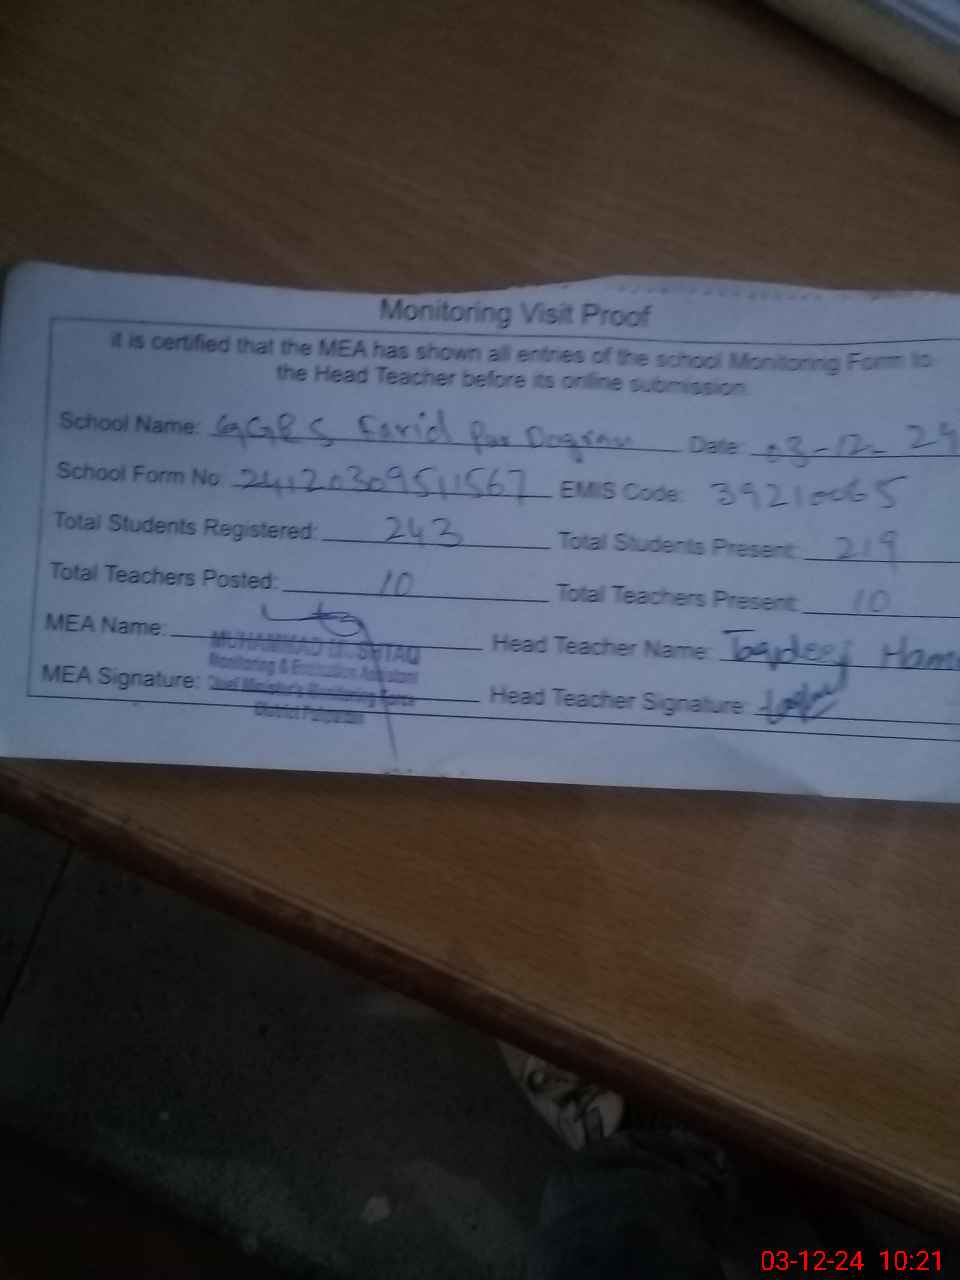 Monitoring Visit Proof
it is certified that the MEA has shown all entries of the school Monitoring Form to
the Head Teacher before its online submission.
School Name: GGPS Farid Pur Dogran Date: 03-12-24
School Form No: 24120309511567 EMIS Code: 39210065
Total Students Registered: 243 Total Students Present: 219
Total Teachers Posted: 10 Total Teachers Present: 10
MEA Name: Head Teacher Name:
MUHAMMAD
Monitoring & Evaluation Assistant
MEA Signature: Chief Minister's Monitoring Force Head Teacher Signature:
District Pakpattan
03-12-24 10:21